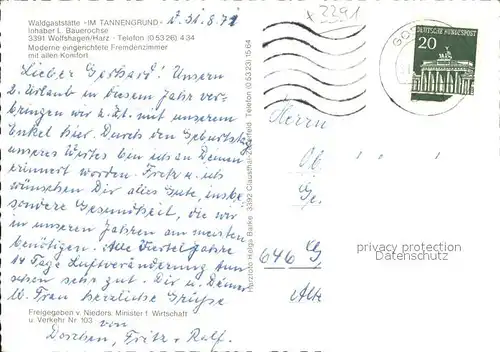 Waldgaststätte »IM TANNENGRUND«
Inhaber L. Bauerochse
3391 Wolfshagen/Harz · Telefon (0 53 26) 4 34
Moderne eingerichtete Fremdenzimmer
mit allen Komfort
d. 31.8.71
x 2291
GOS
DEUTSCHE BUNDESPOST
20
Lieber Gerhard! Unseren
2. Urlaub in diesem Jahr ver-
bringen wir z.Zt. mit unserem
Enkel hier. Durch den Geburtstag
unseres Wirtes bin ich an Deinen
erinnert worden. Fritz u. ich
wünschen Dir alles Gute, insbe-
sondere Gesundheit, die wir
in unseren Jahren am meisten
benötigen. Alle Vierteljahre
14 Tage Luftveränderung tun
schon sehr gut. Dir u. Deiner
lb. Frau herzliche Grüße
von
Dorchen, Fritz u. Ralf.
Freigegeben v. Nieders. Minister f. Wirtschaft
u. Verkehr Nr. 103
Harzfoto Holga Barke 3392 Clausthal-Zellerfeld. Telefon (0 53 23) 15 64
Herrn
Ob
Ge
646 G
Alte
privacy protection
Datenschutz